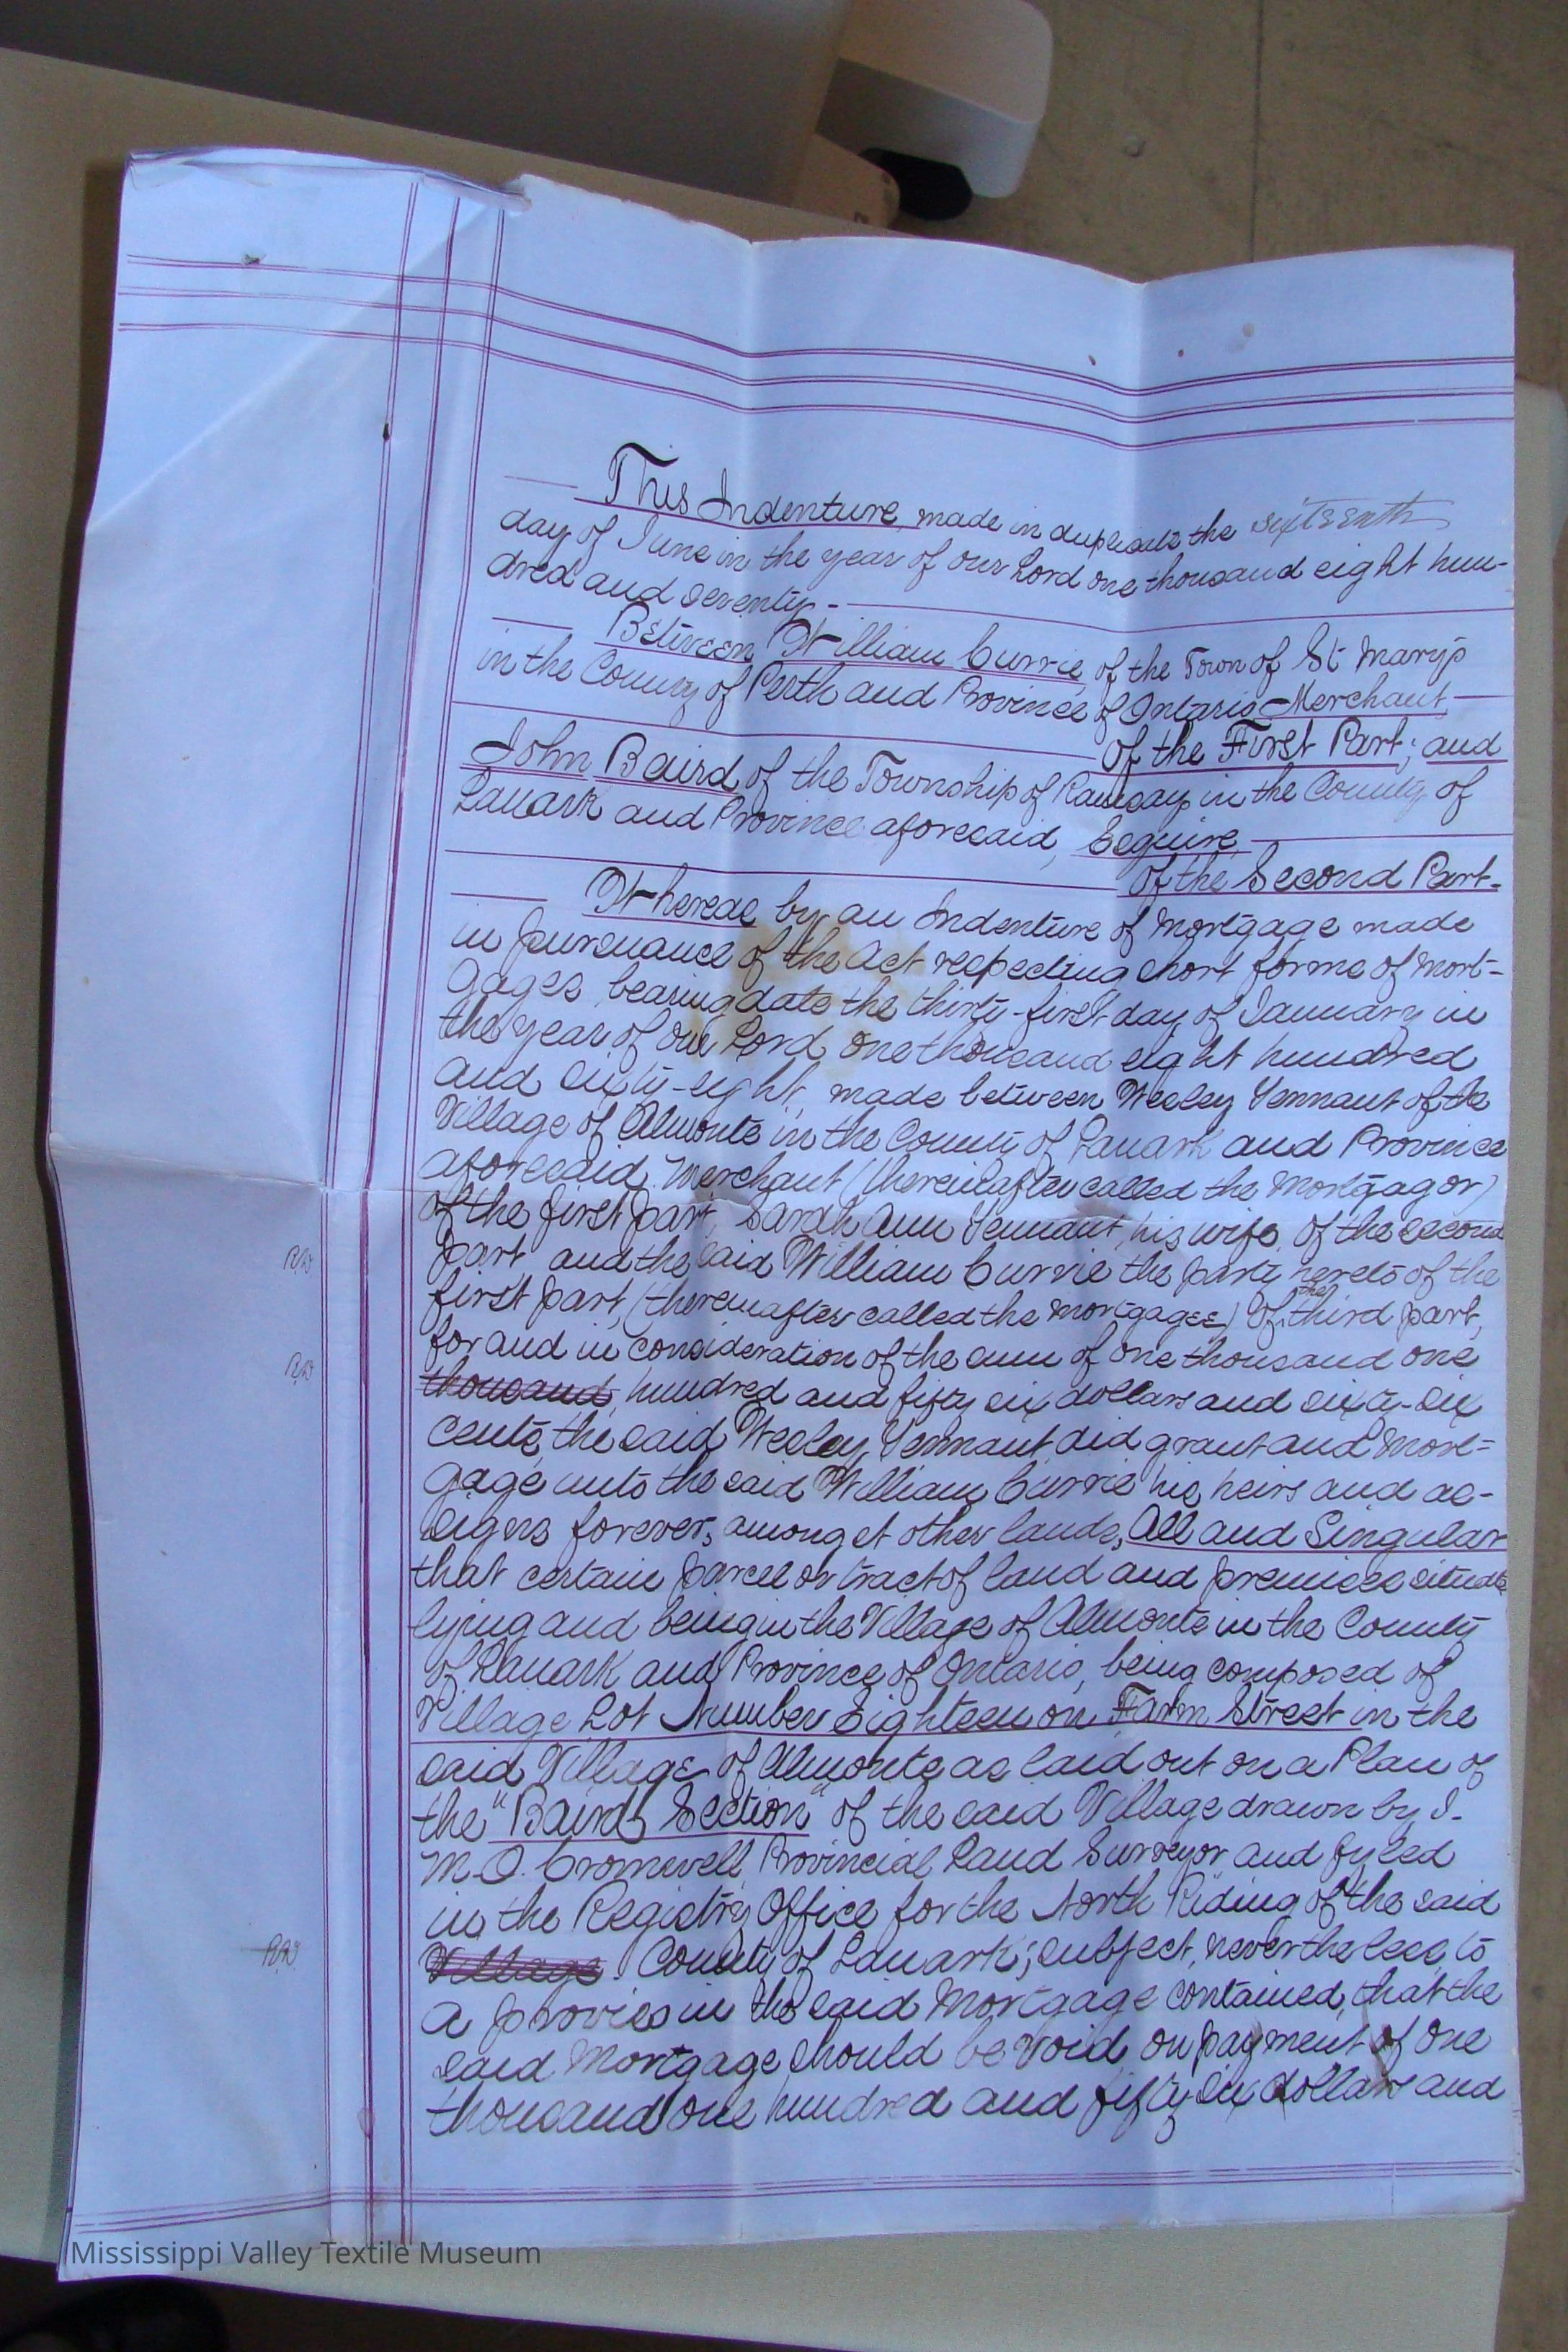 This Indenture made in duplicate the sixteenth
day of June in the year of our Lord one thousand eight hun-
dred and seventy -
Between William Currie of the Town of St Mary's
in the County of Perth and Province of Ontario Merchant
of the First Part; and
John Baird of the Township of Ramsay in the County of
Lanark and Province aforesaid, Esquire,
of the Second Part-
Whereas by an Indenture of Mortgage made
in pursuance of the Act respecting short forms of Mort-
gages bearing date the thirty-first day of January in
the year of our Lord one thousand eight hundred
and sixty-eight, made between Wesley Tennant of the
Village of Almonte in the County of Lanark and Province
aforesaid Merchant (thereinafter called the Mortgagor)
of the first part, Sarah Ann Tennant, his wife, of the second
part and the said William Currie the party hereto of the
RW
first part, (thereinafter called the Mortgagee) of the third part,
for and in consideration of the sum of one thousand one
RW
thousand hundred and fifty six dollars and sixty-six
cents, the said Wesley Tennant did grant and mort=
gage unto the said William Currie his heirs and as-
signs forever, amongst other lands, All and Singular
that certain parcel or tract of land and premises situate
lying and being in the Village of Almonte in the County
of Lanark and Province of Ontario, being composed of
Village Lot Number Eighteen on Farm Street in the
said Village of Almonte as laid out on a Plan of
the "Baird Section" of the said Village drawn by J.
M. O. Cromwell Provincial Land Surveyor and fyled
in the Registry Office for the North Riding of the said
RW
Village County of Lanark; subject, nevertheless, to
a proviso in the said Mortgage contained, that the
said Mortgage should be void on payment of one
thousand one hundred and fifty six dollars and
Mississippi Valley Textile Museum